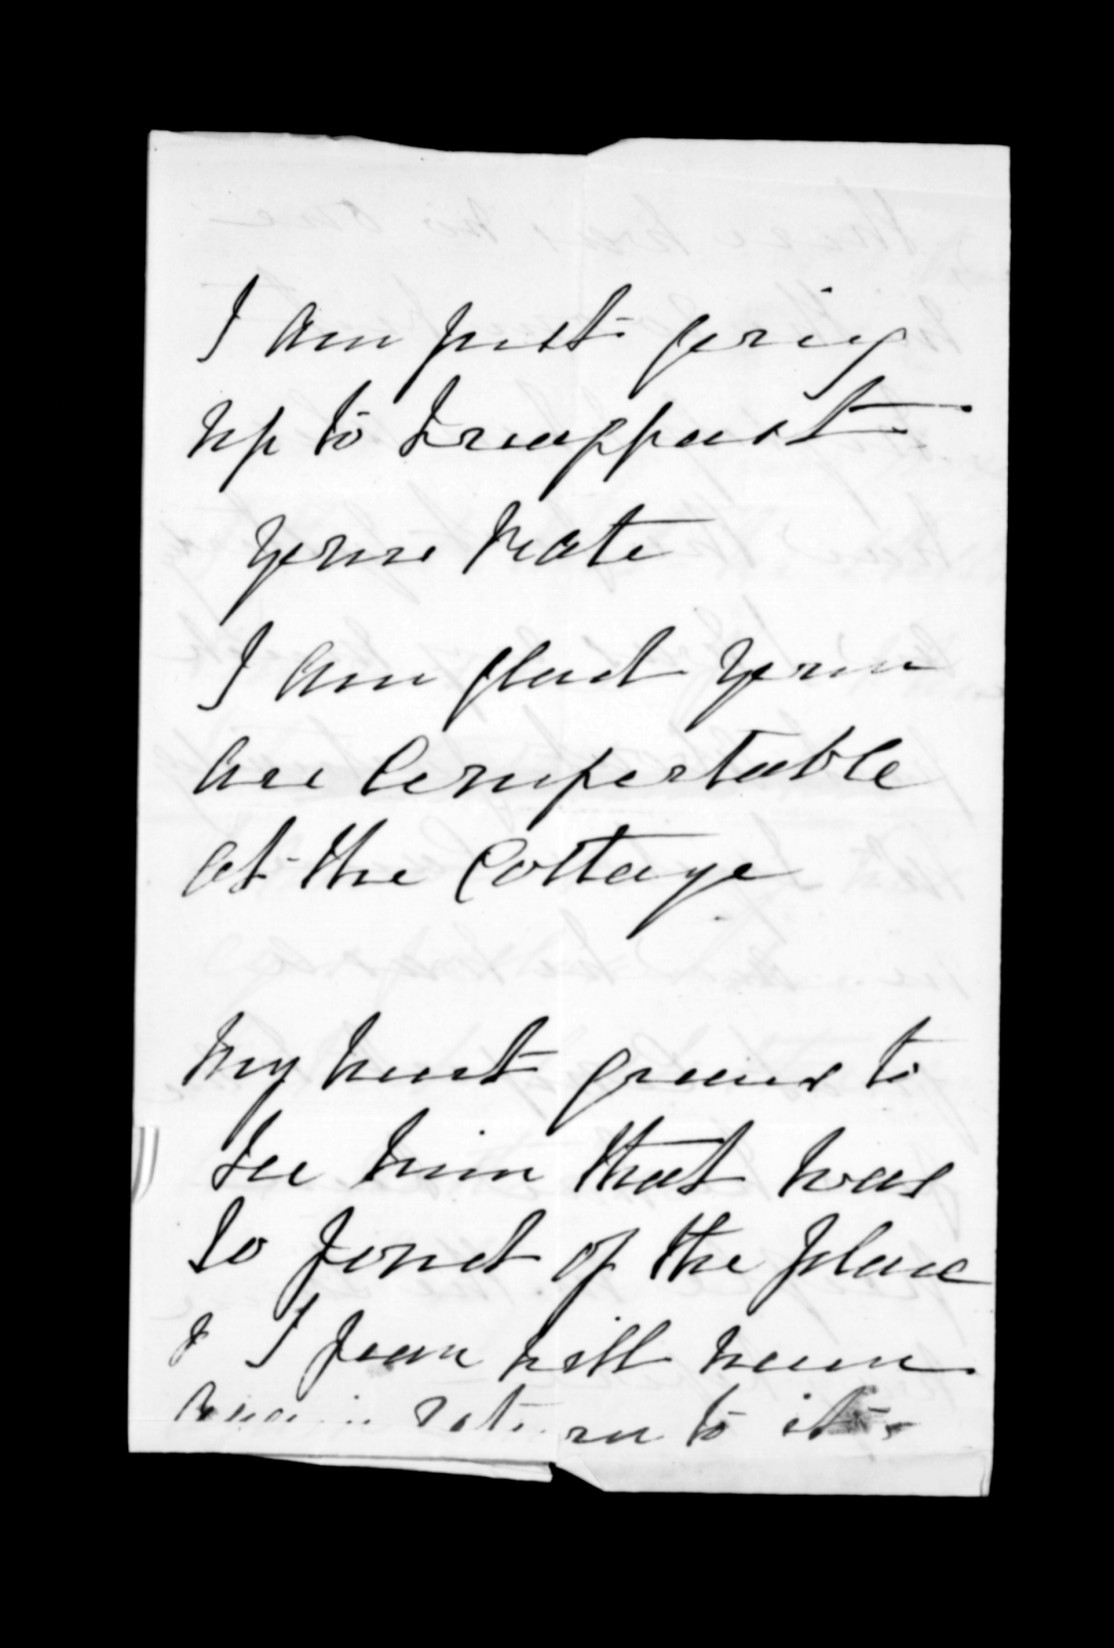 I am just going
up to
your Kate
I am glad you
are Comfortable
at the Cottage
My heart grieves to
see him that was
so fond of the place
& I fear will never
again return to it